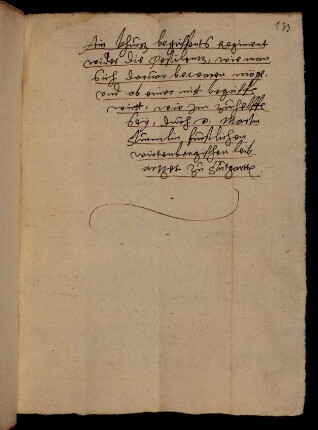 133
Ein khurz begriffents Regiment
wider die Pestilentz, wie man
sich daruor bewaren möge,
und ob einer mit begrifft
wirtt, wie Im zuhelffe
sey, durch D. Martin
fürstlichen
wirtenbergischen leib
artzet zu Stutgarten